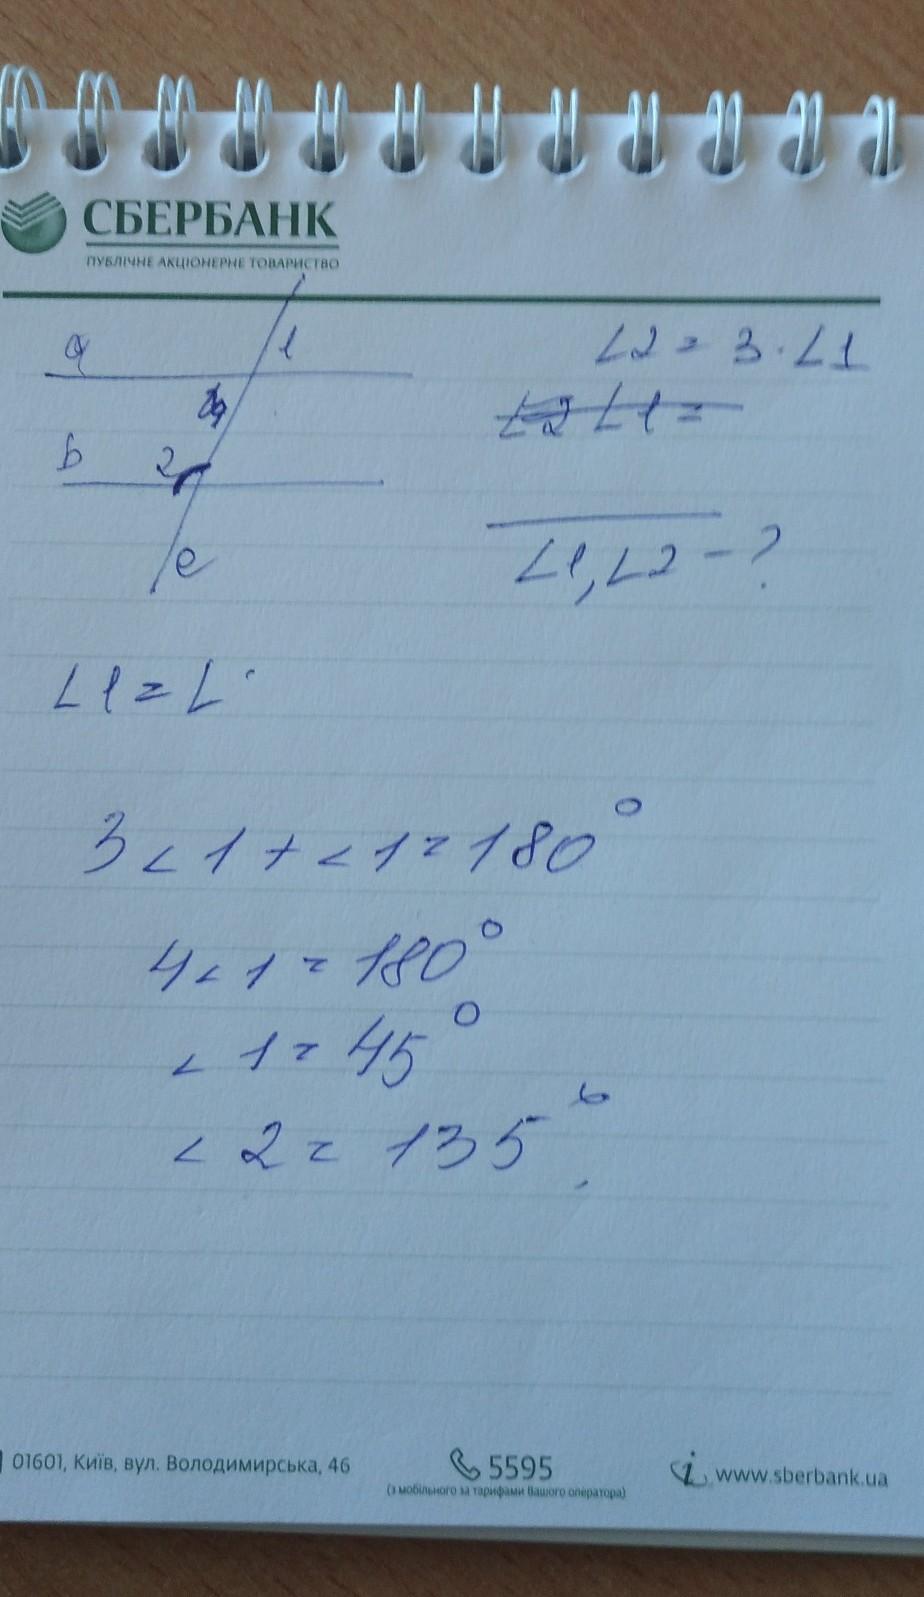 СБЕРБАНК
ПУБЛІЧНЕ АКЦІОНЕРНЕ ТОВАРИСТВО
a
1
b
2
e
∠2 = 3 · ∠1
∠2 ∠1 =
∠1, ∠2 - ?
∠1 = ∠
3 < 1 + < 1 = 180°
4 < 1 = 180°
< 1 = 45°
< 2 = 135°
01601, Київ, вул. Володимирська, 46
5595
(з мобільного за тарифами Вашого оператора)
www.sberbank.ua